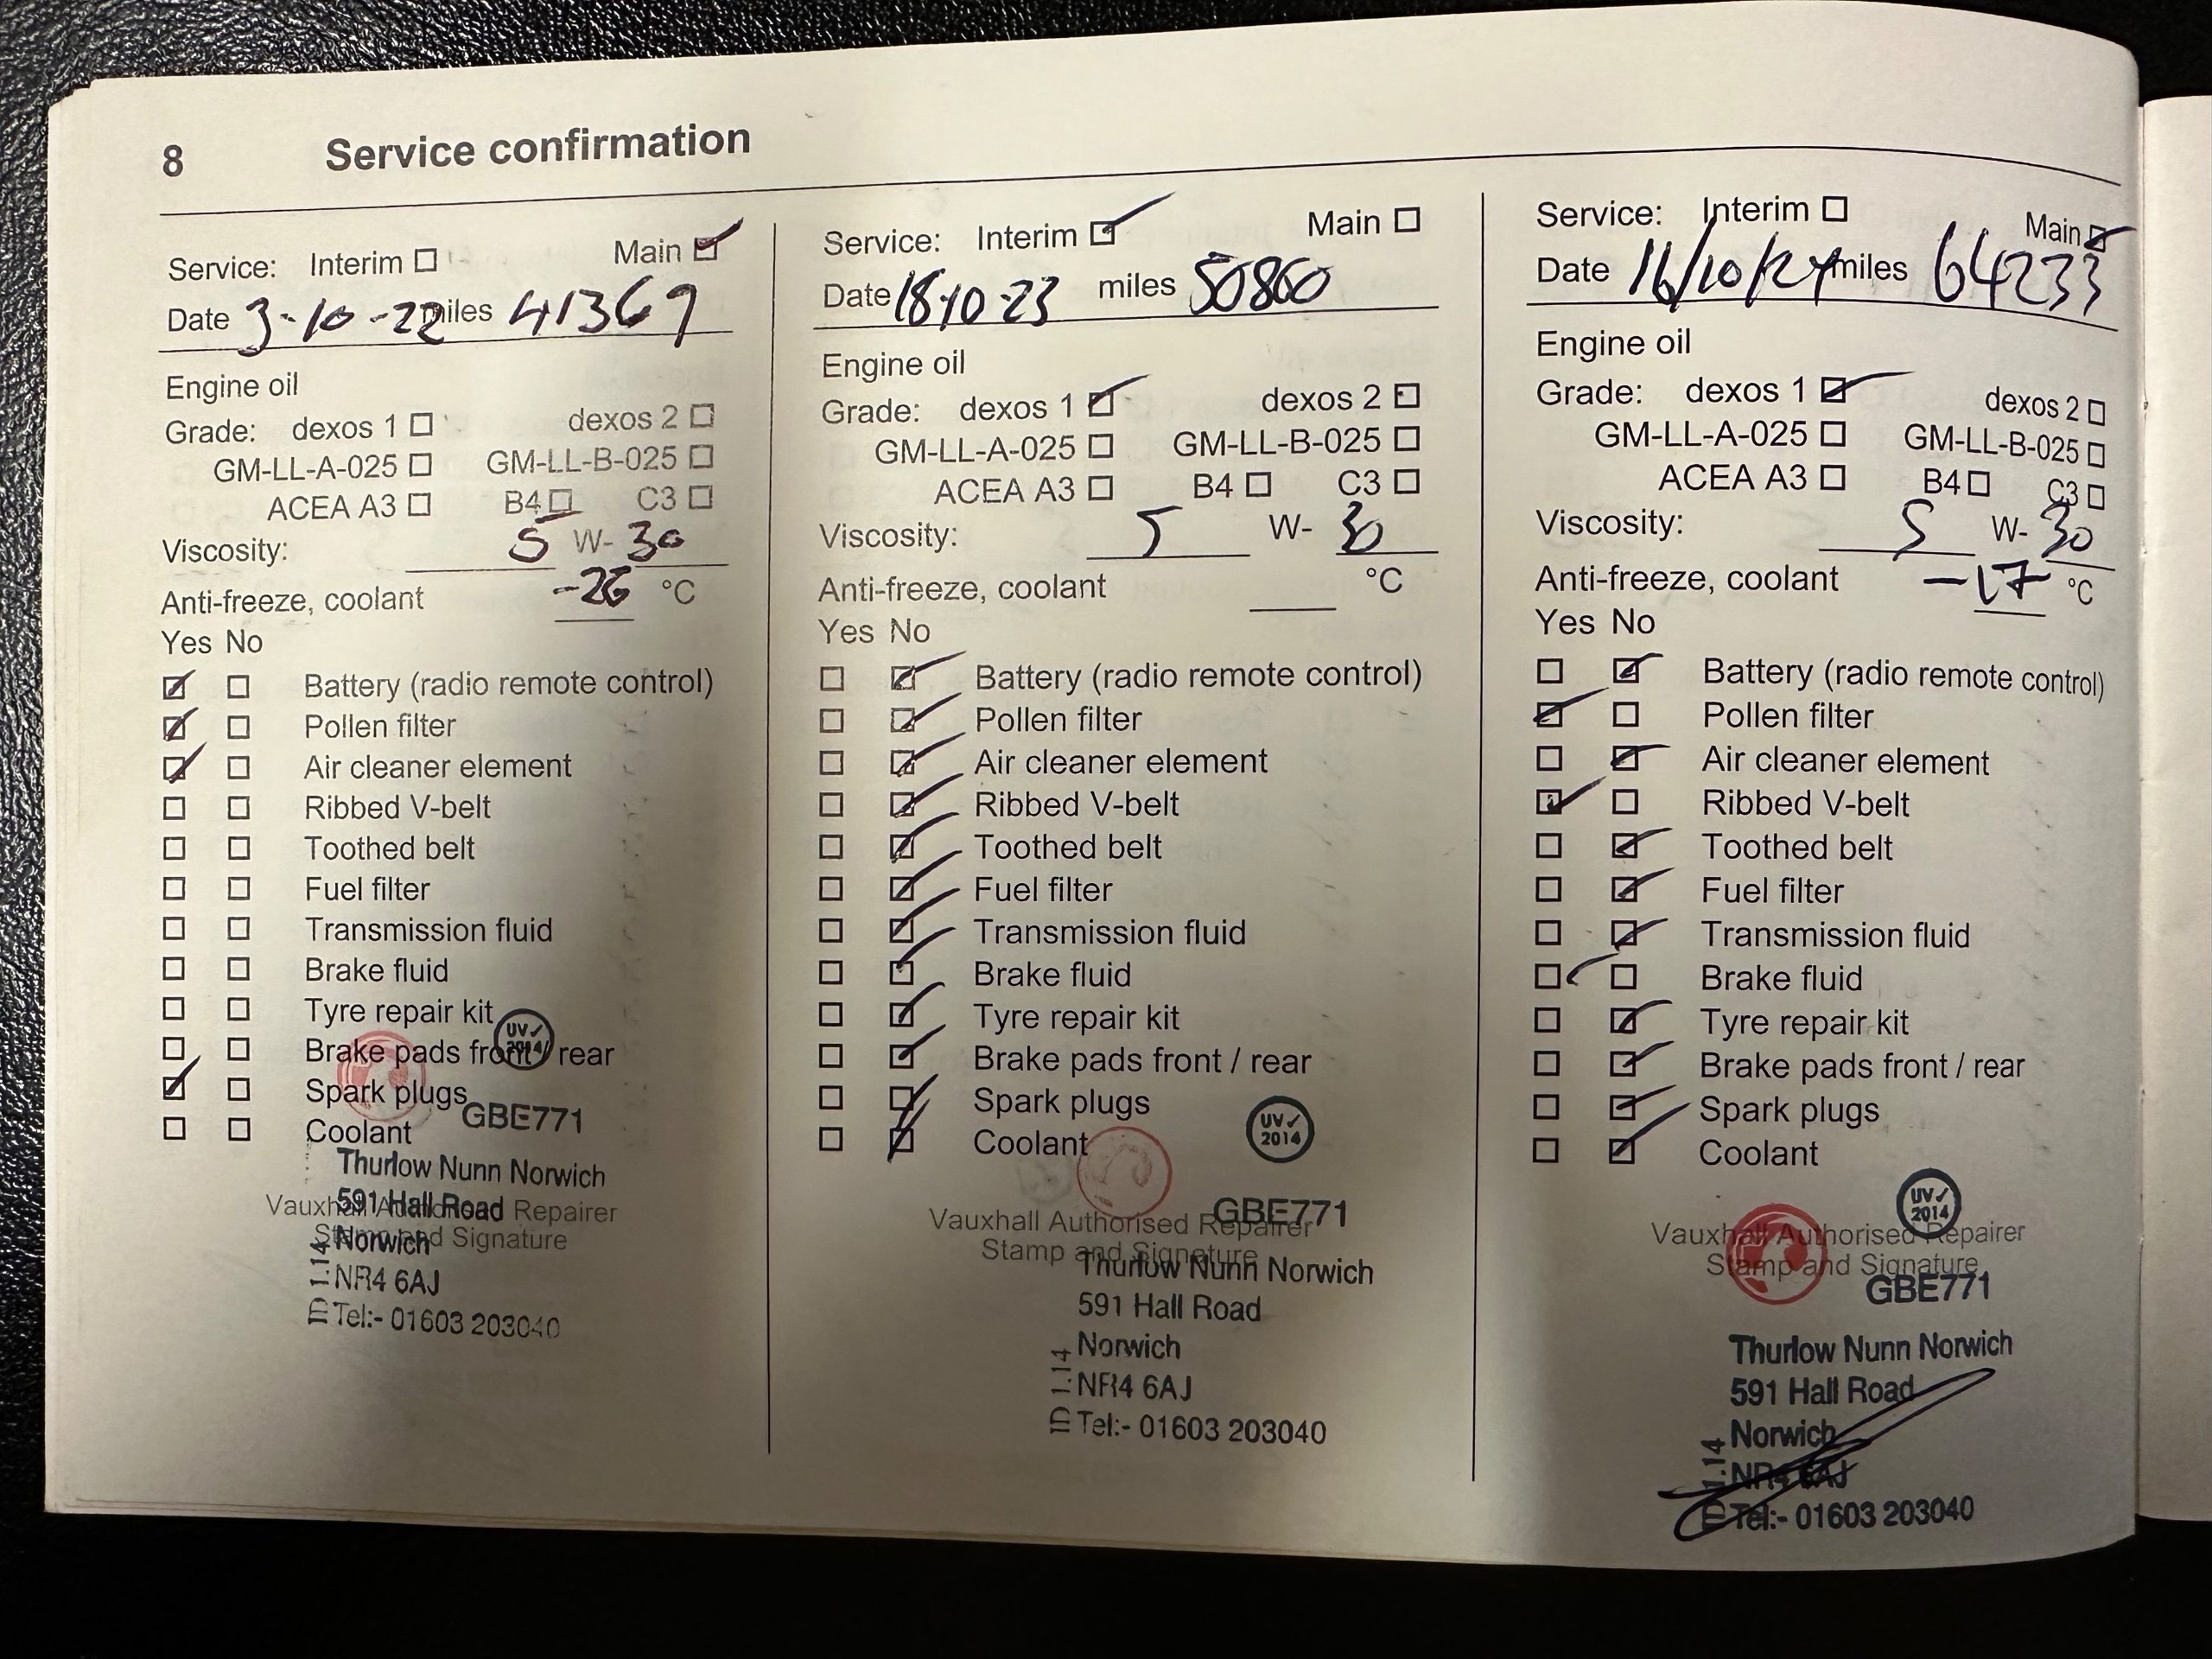 8 Service confirmation
Service: Interim Main
Date 3-10-22 miles 41369
Engine oil
Grade: dexos 1 dexos 2
GM-LL-A-025 GM-LL-B-025
ACEA A3 B4 C3
Viscosity: 5 W- 30
Anti-freeze, coolant -26 °C
Yes No
Battery (radio remote control)
Pollen filter
Air cleaner element
Ribbed V-belt
Toothed belt
Fuel filter
Transmission fluid
Brake fluid
Tyre repair kit
UV✓
2014
Brake pads front / rear
Spark plugs
GBE771
Coolant
Thurlow Nunn Norwich
591 Hall Road
Vauxhall Authorised Repairer
Stamp and Signature
Norwich
NR4 6AJ
Tel:- 01603 203040
ID 1.14
Service: Interim Main
Date 18-10-23 miles 50860
Engine oil
Grade: dexos 1 dexos 2
GM-LL-A-025 GM-LL-B-025
ACEA A3 B4 C3
Viscosity: 5 W- 30
Anti-freeze, coolant °C
Yes No
Battery (radio remote control)
Pollen filter
Air cleaner element
Ribbed V-belt
Toothed belt
Fuel filter
Transmission fluid
Brake fluid
Tyre repair kit
Brake pads front / rear
Spark plugs
UV✓
2014
Coolant
GBE771
Vauxhall Authorised Repairer
Stamp and Signature
Thurlow Nunn Norwich
591 Hall Road
Norwich
NR4 6AJ
Tel:- 01603 203040
ID 1.14
Service: Interim Main
Date 16/10/24 miles 64233
Engine oil
Grade: dexos 1 dexos 2
GM-LL-A-025 GM-LL-B-025
ACEA A3 B4 C3
Viscosity: 5 W- 30
Anti-freeze, coolant -17 °C
Yes No
Battery (radio remote control)
Pollen filter
Air cleaner element
Ribbed V-belt
Toothed belt
Fuel filter
Transmission fluid
Brake fluid
Tyre repair kit
Brake pads front / rear
Spark plugs
Coolant
UV✓
2014
Vauxhall Authorised Repairer
Stamp and Signature
GBE771
Thurlow Nunn Norwich
591 Hall Road
Norwich
NR4 6AJ
Tel:- 01603 203040
ID 1.14